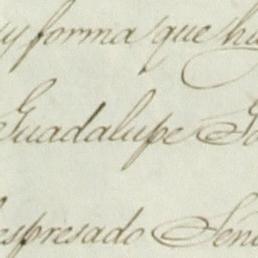 y forma que
Guadalupe
espresado